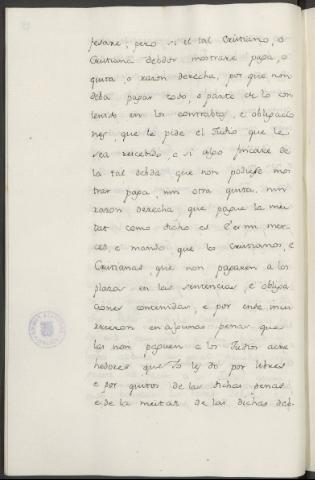 pesare; pero si el tal Cristiano, o
Cristiana debdor mostrare paga, o
quita, o razon derecha, por que non
deba pagar todo, o parte de lo con
tenido en los contrabtos, e obligacio
nes, que le pide el Judio que le
sea rescebido, e si algo fincare de
la tal debda que non podiese mos
trar paga, nin otra quita, nin
razon derecha, que pague la mei
tat como dicho es. E es mi mer
ced, e mando que los Cristianos, e
Cristianas, que non pagaren a los
plazos en las sentencias, e obliga
ciones contenidas, e por ende incu
rrieron en algunas penas que
las non paguen a los Judios acre
hedores que Yo les do por libres
e por quitos de las dichas penas
e de la meitat de las dichas deb-